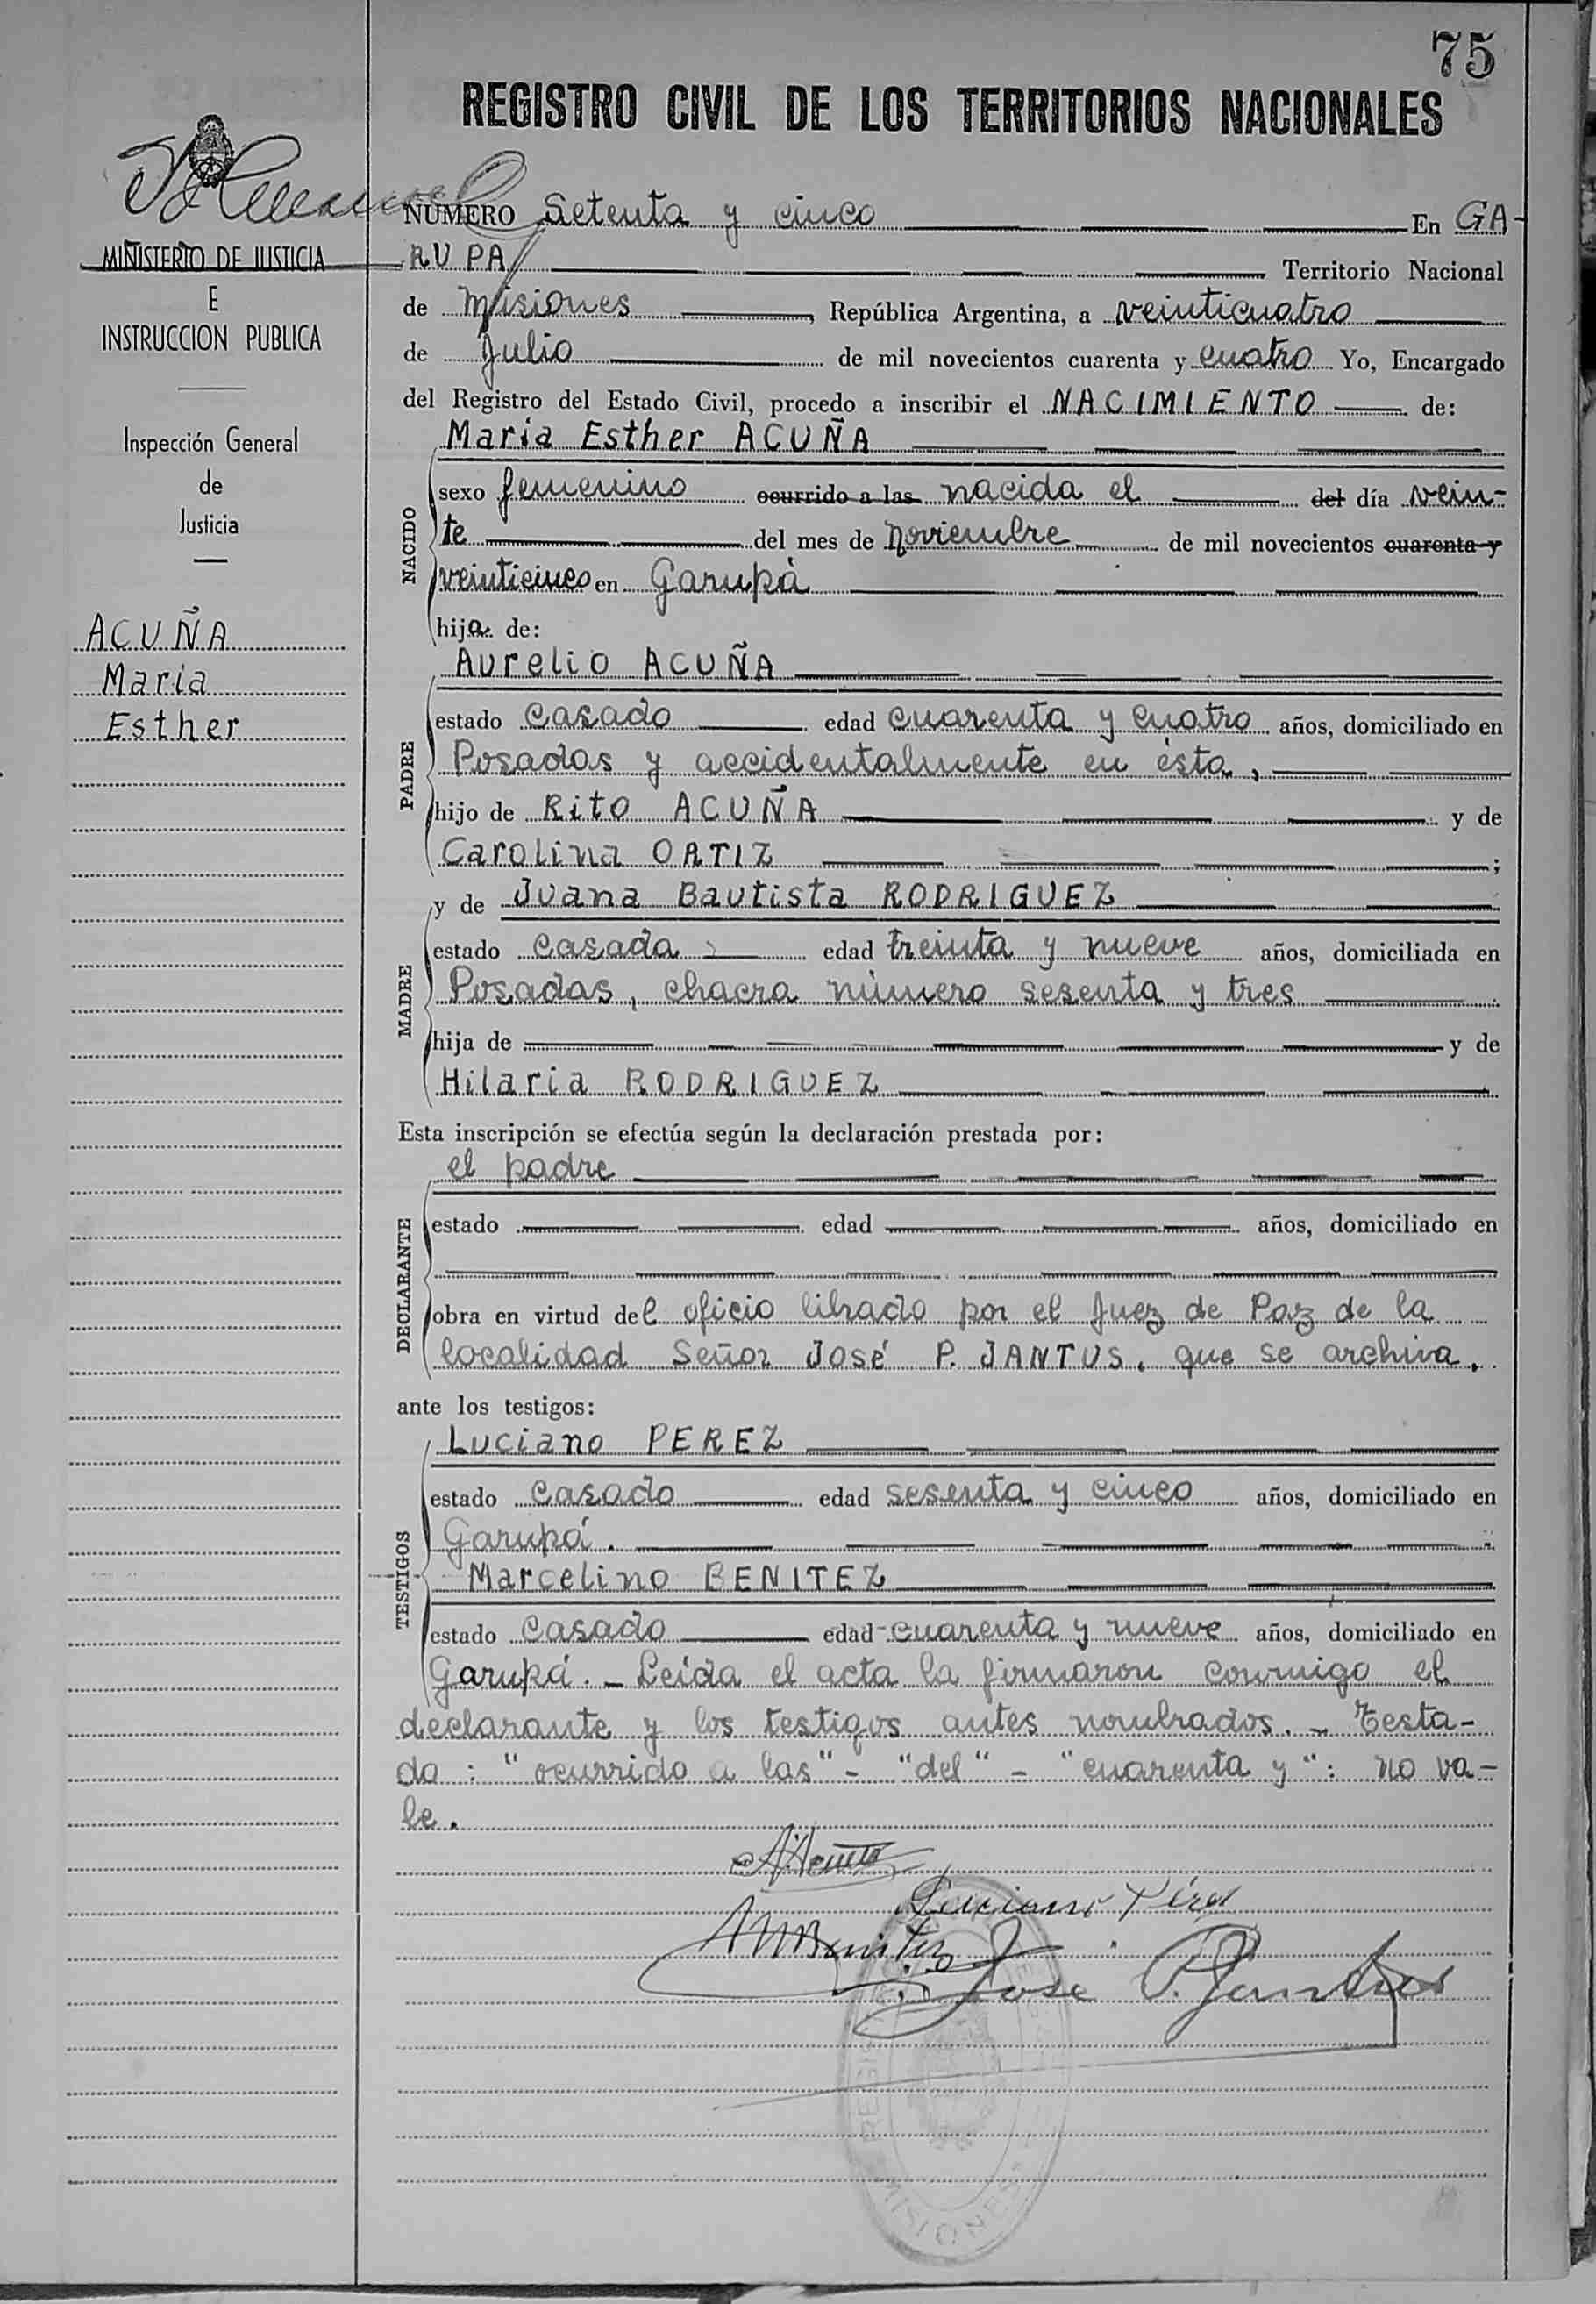 75
REGISTRO CIVIL DE LOS TERRITORIOS NACIONALES
MINISTERIO DE JUSTICIA
E
INSTRUCCION PUBLICA
Inspección General
de
Justicia
ACUÑA
María
Esther
NÚMERO Setenta y cinco En GA-
RUPA Territorio Nacional
de Misiones, República Argentina, a veinticuatro
de Julio de mil novecientos cuarenta y cuatro Yo, Encargado
del Registro del Estado Civil, procedo a inscribir el NACIMIENTO de:
María Esther ACUÑA
NACIDO
sexo femenino ocurrido a las nacida el del día vein-
te del mes de Noviembre de mil novecientos cuarenta y
veinticinco en Garupá
hija de:
Aurelio ACUÑA
PADRE
estado casado edad cuarenta y cuatro años, domiciliado en
Posadas y accidentalmente en ésta,
hijo de Rito ACUÑA y de
Carolina ORTIZ ;
y de Juana Bautista RODRIGUEZ
MADRE
estado casada edad treinta y nueve años, domiciliada en
Posadas, chacra número sesenta y tres
hija de y de
Hilaria RODRIGUEZ
Esta inscripción se efectúa según la declaración prestada por:
el padre
DECLARANTE
estado edad años, domiciliado en
obra en virtud del oficio librado por el Juez de Paz de la
localidad Señor José P. JANTUS, que se archiva.
ante los testigos:
Luciano PEREZ
TESTIGOS
estado casado edad sesenta y cinco años, domiciliado en
Garupá.
Marcelino BENITEZ
estado casado edad cuarenta y nueve años, domiciliado en
Garupá. - Leída el acta la firmaron conmigo el
declarante y los testigos antes nombrados. - Testa-
do : "ocurrido a las" - "del" - "cuarenta y": no va-
le.
Luciano Pérez
MBenitez
Jose P. Jantus
MISIONES